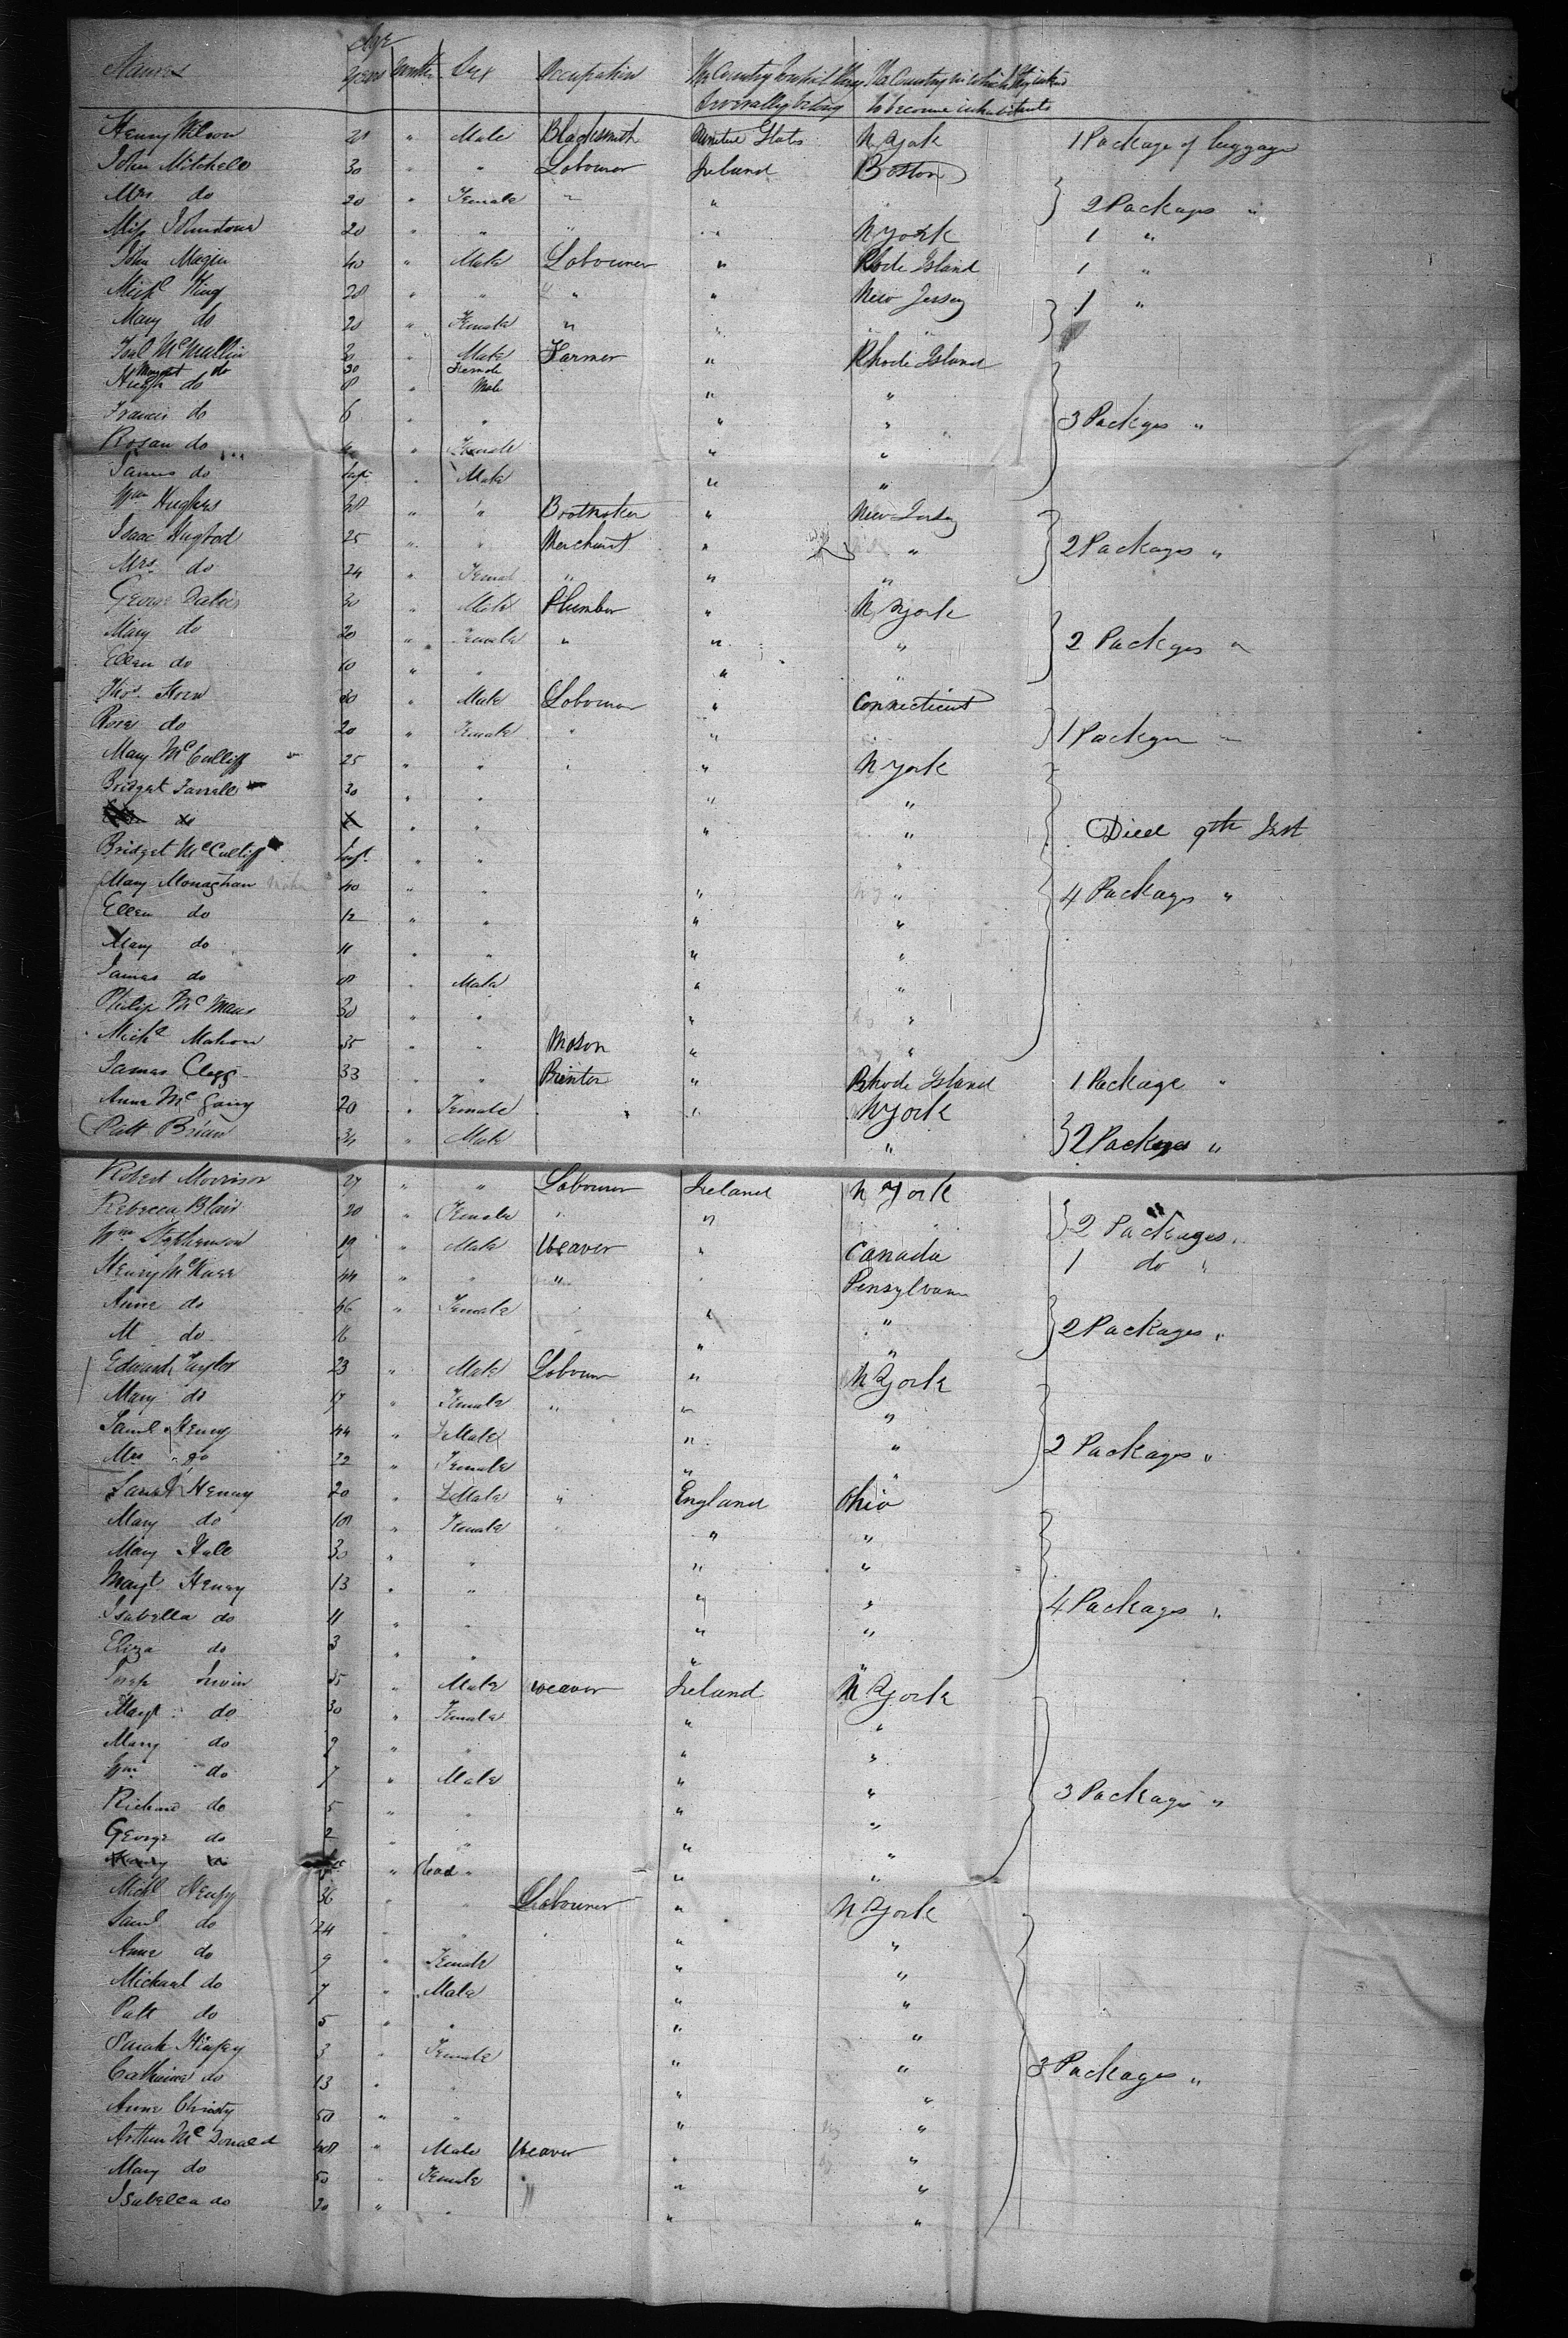 Names Age Years Months Sex Occupation The Country to which they severally belong The Country in which they intend to become inhabitants
Henry Wilson 28 " Male Blacksmith United States N York 1 Package of luggage
John Mitchell 30 " " Labourer Ireland Boston
Mrs do 20 " Female " " " 2 Packages "
Miss Johnstone 20 " " " " N York 1 "
John 40 " Male Labourer " Rhode Island 1 "
Michl King 28 " " " " New Jersey 1 "
Mary do 20 " Female " " "
McMullin " Male Farmer " Rhode Island
Margat do 30 Female
Hugh do 8 " Male " "
Francis do 6 " " " " 3 Packges "
Rosan do " Female " "
James do Inft " Male " "
Wm Hughes " " Bootmaker " New Jersey
Isaac 25 " " Merchant " " 2 Packages "
Mrs do 24 " Female " " "
George 30 " Male Plumber " N York
Mary do 20 " Female " " " 2 Packages "
Ellen do 10 " " " "
Thos 30 " Male Labourer " Connecticut
Rose do 20 " Female " " " 1 Package "
Mary McCulliff 25 " " " " N York
Bridget Farrell 30 " " " "
do " " " " Died 9th Inst
Bridget McCulliff Inft " " "
Mary Monaghan 40 " " " " 4 Packages "
Ellen do 12 " " " "
Mary do 11 " " " "
James do 8 " Male " "
Philip McManus 30 " " " "
Michl Mahon 35 " " Mason " "
James Clegg 33 " " Printer " Rhode Island 1 Package "
Anne McGairy 20 " Female " " N York
Patt Brian " Male " 2 Packages "
Robert Morrison 27 " " Labourer Ireland N York
Rebecca Blair 20 " Female " " " 2 Packages "
Wm Stephenson 19 " Male Weaver " Canada 1 do "
Henry 44 " " " " Pensylvan
Anne do 46 " Female " "
M do 16 " " 2 Packages "
Edward Taylor 23 " Male Labour " N York
Mary do 17 " Female " " "
Saml Henry 44 " Male " " 2 Packages "
Mrs do 22 " Female " "
Henry 20 " Male " England Ohio
Mary do " Female " " "
Mary Hall 30 " " " "
Margt Henry 13 " " " "
Isabella do 11 " " " " 4 Packages "
Eliza do 3 " " "
Joseph Irwin 35 " Male weaver Ireland N York
Margt do 30 " Female " "
Mary do 9 " " " "
Wm do 7 " Male " "
Richard do 5 " " " " 3 Packages "
George do 2 " " " "
do " Dead " " "
Michl 36 " " Labourer " N York
do 24 " " " " "
Anne do 9 " Female " "
Michael do 7 " Male " "
Patt do 5 " " " "
Sarah 3 " Female " "
Catherine do 13 " " " " 3 Packages "
Anne Christy 50 " " " "
Arthur McDonald 48 " Male Weaver " "
Mary do 50 " Female " " "
Isabella do 20 " " " "